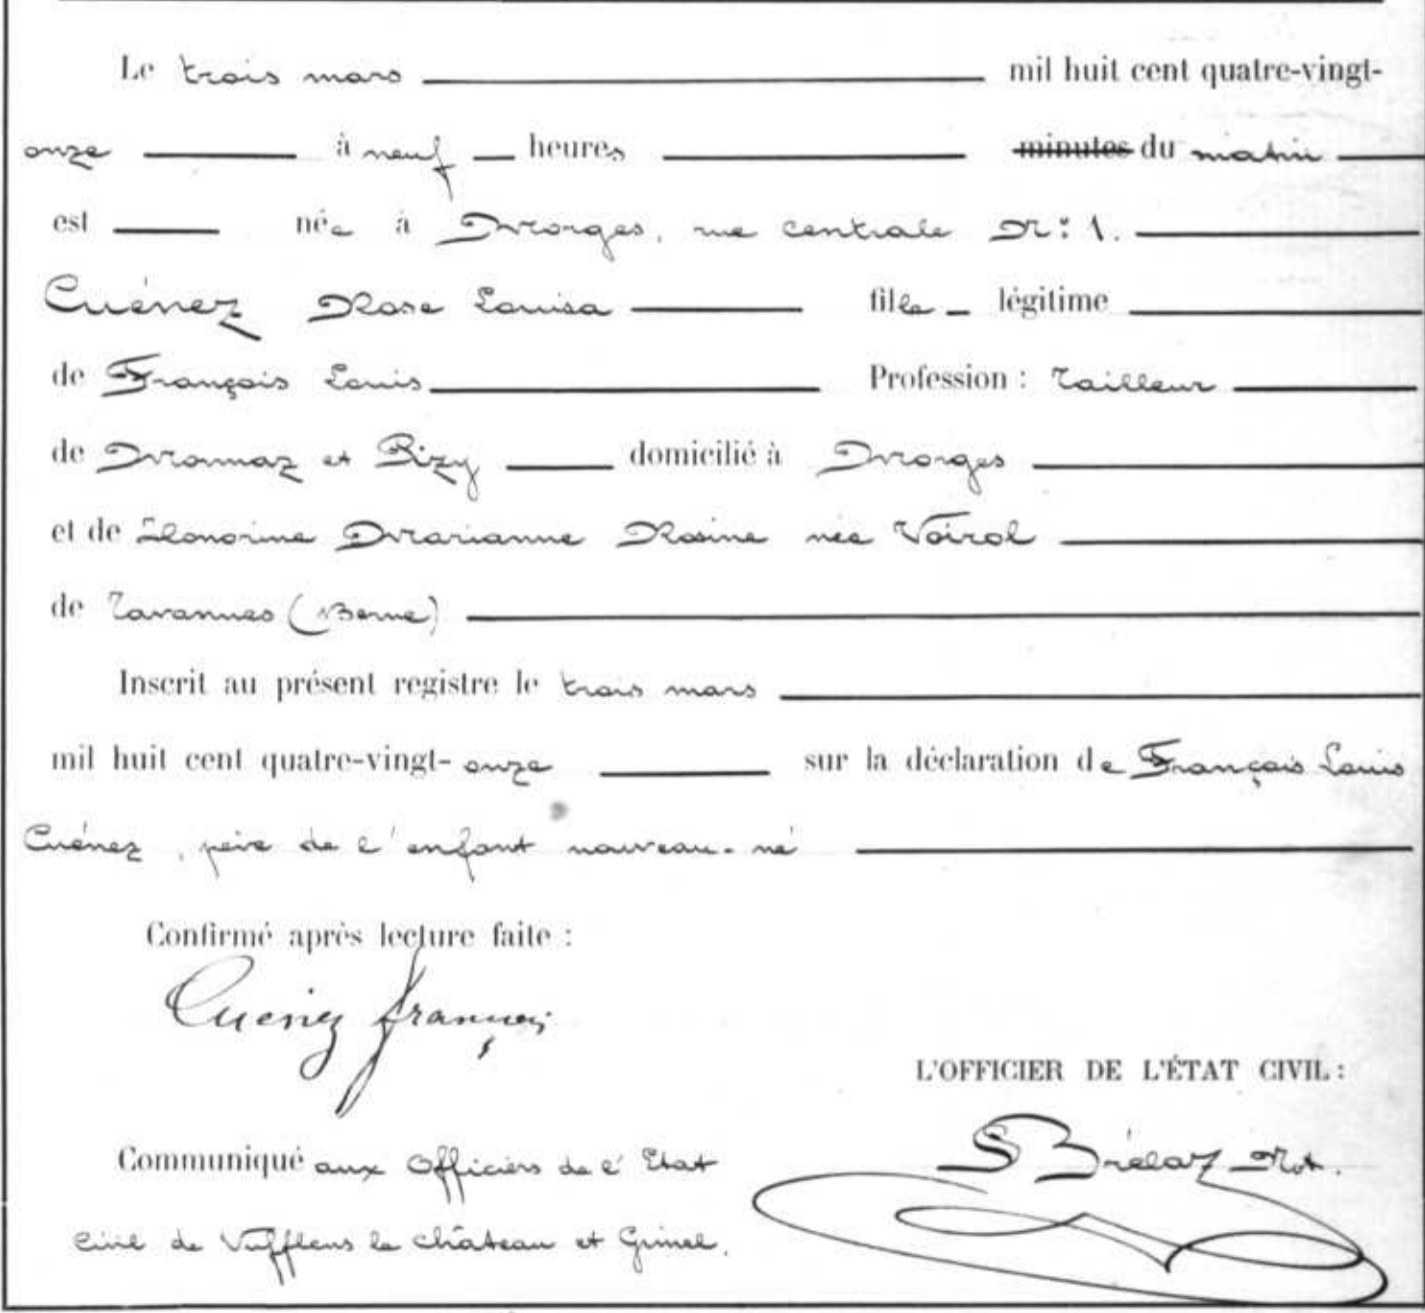 Le trois mars mil huit cent quatre-vingt-
onze à neuf heures minutes du matin
est née à Morges, rue centrale N: 1.
Cuénez Rose Louisa fille légitime
de François Louis Profession : Tailleur
de Monnaz et Bizy domicilié à Morges
et de Honorine Marianne Rosine née Voirol
de Tavannes (Berne)
Inscrit au présent registre le trois mars
mil huit cent quatre-vingt- onze sur la déclaration de François Louis
Cuénez, père de l'enfant nouveau-né
Confirmé après lecture faite :
Cueney françois
L'OFFICIER DE L'ÉTAT CIVIL :
S Brélaz Not.
Communiqué aux Officiers de l'Etat
civil de Vufflens le château et Grimel.